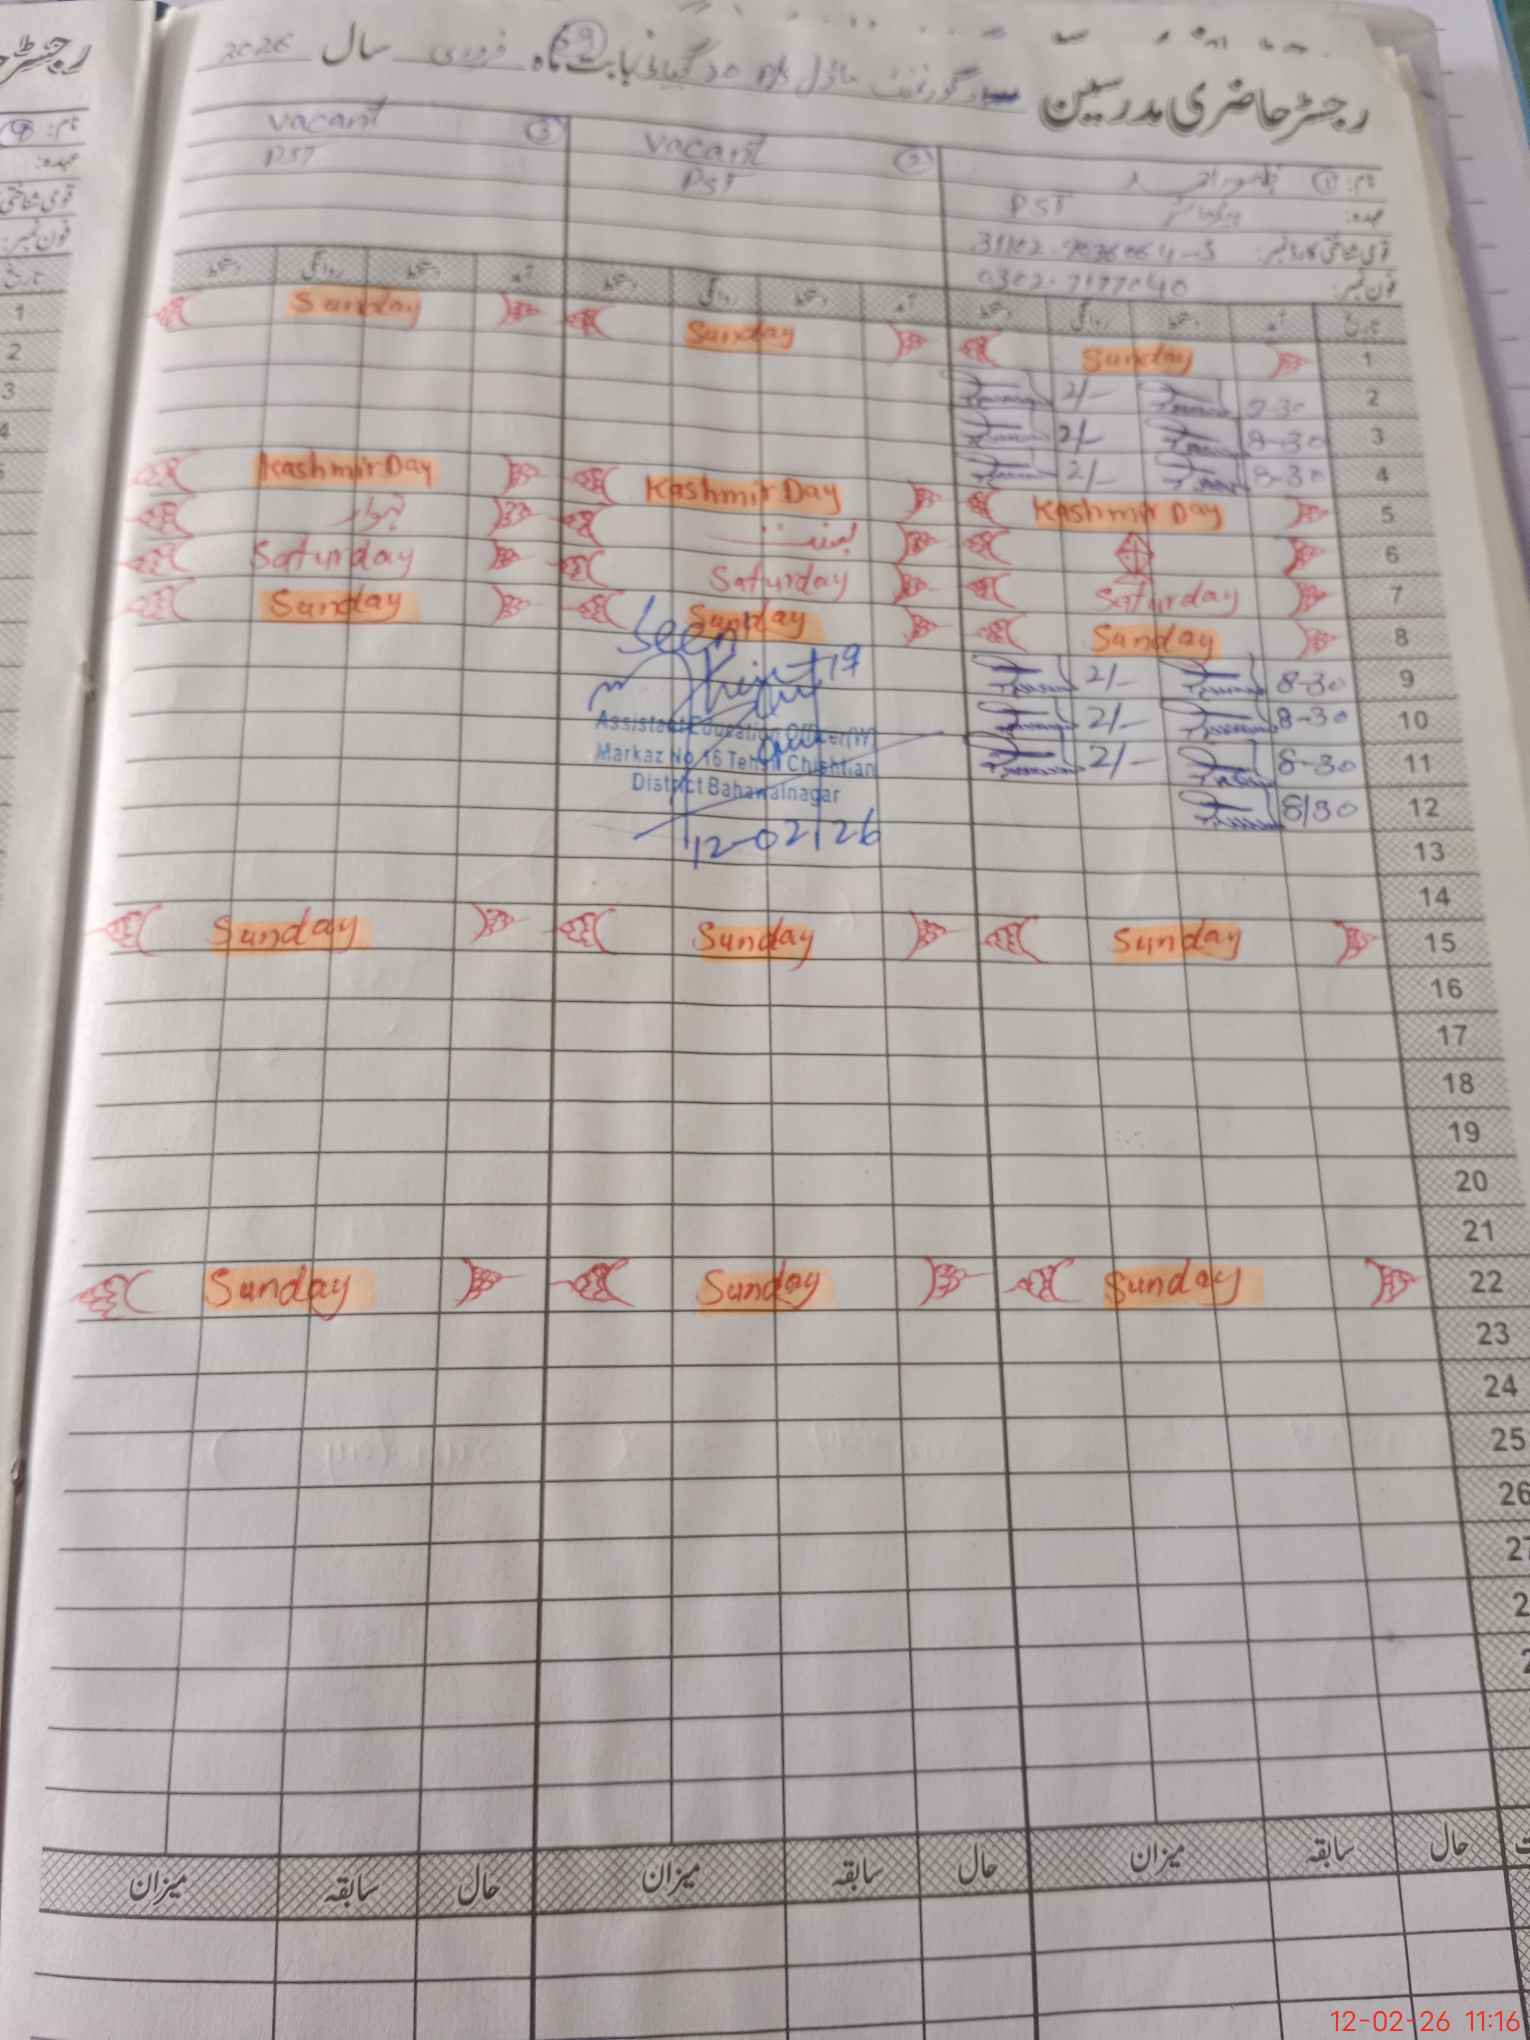 رجسٹر حاضری مدرسین گورنمنٹ ماڈل بابت ماہ فروری سال 2026
نام: ①
vacant ②
vacant ③
عہدہ: PST
PST
PST
قومی شناختی کارڈ نمبر:
فون نمبر: 0302-7197040
تاریخ آمد دستخط روانگی دستخط آمد دستخط روانگی دستخط آمد دستخط روانگی دستخط
1 Sunday Sunday Sunday
2 2/-
3 8-30 2/-
4 8-30 2/-
5 Kashmir Day Kashmir Day Kashmir Day
6 بسنت تہوار
7 Saturday Saturday Saturday
8 Sunday Sunday Sunday
Seen
9 8-30 2/-
10 8-30 2/-
Assistant Education Officer(W)
11 8-30 2/-
Markaz No 16 Tehsil Chishtian
District Bahawalnagar
12 8/30
12-02-26
13
14
15 Sunday Sunday Sunday
16
17
18
19
20
21
22 Sunday Sunday Sunday
23
24
25
26
27
حال سابقہ میزان حال سابقہ میزان حال سابقہ میزان
12-02-26 11:16